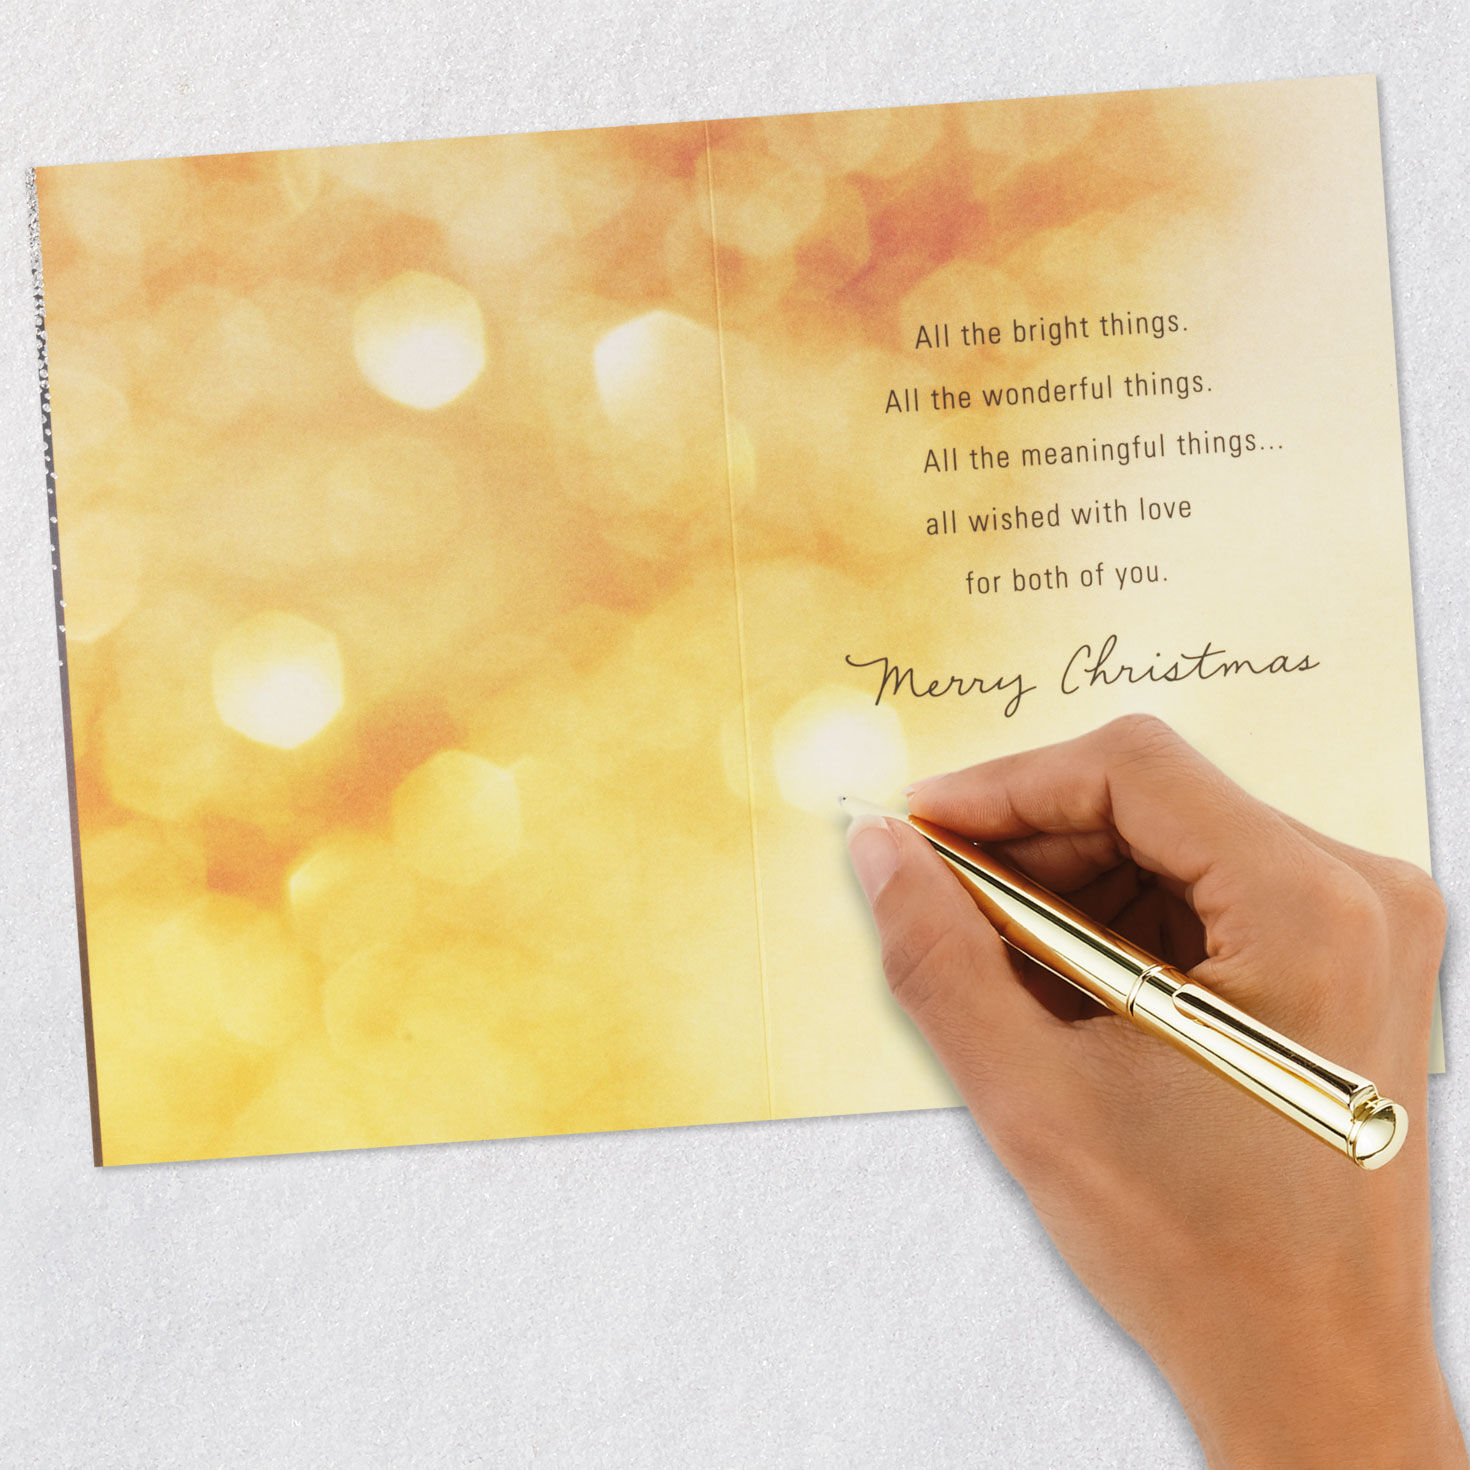 All the bright things.
All the wonderful things.
All the meaningful things...
all wished with love
for both of you.
Merry Christmas